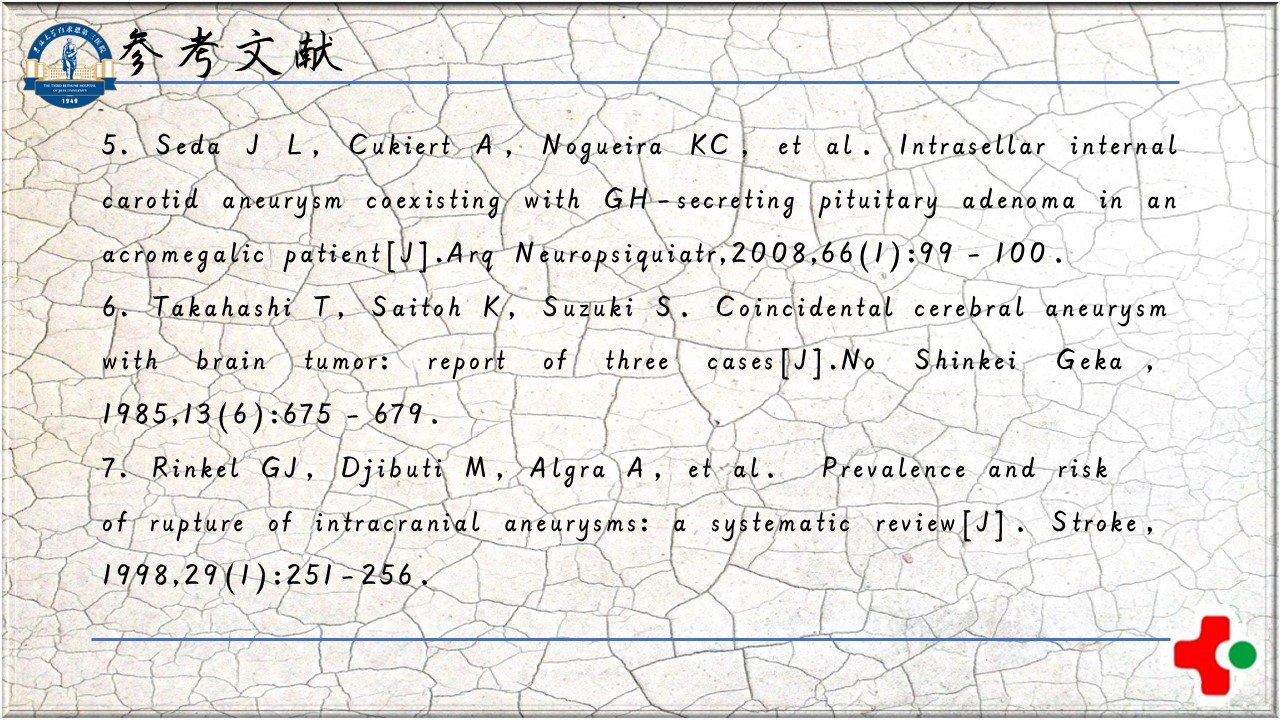 吉林大学白求恩第三医院
THE THIRD BETHUNE HOSPITAL
OF JILIN UNIVERSITY
1949
参考文献
5. Seda J L, Cukiert A, Nogueira KC, et al. Intrasellar internal
carotid aneurysm coexisting with GH-secreting pituitary adenoma in an
acromegalic patient[J].Arq Neuropsiquiatr,2008,66(1):99 – 100.
6. Takahashi T, Saitoh K, Suzuki S. Coincidental cerebral aneurysm
with brain tumor: report of three cases[J].No Shinkei Geka ,
1985,13(6):675 – 679.
7. Rinkel GJ, Djibuti M, Algra A, et al. Prevalence and risk
of rupture of intracranial aneurysms: a systematic review[J]. Stroke,
1998,29(1):251-256.